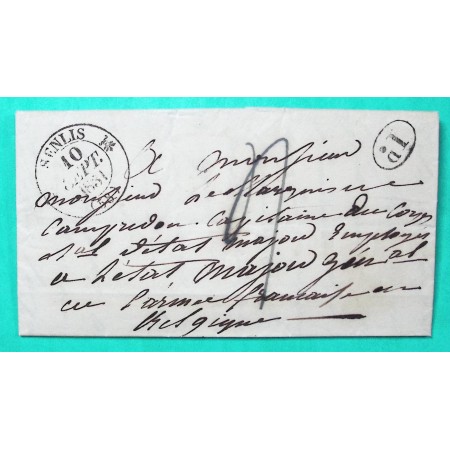 SENLIS
10
SEPT.
1831
A Monsieur
Monsieur le Marquis de
Campredon Capitaine du Corps
d'état major Employé
a l'état Major Général
de l'armée française en
Belgique